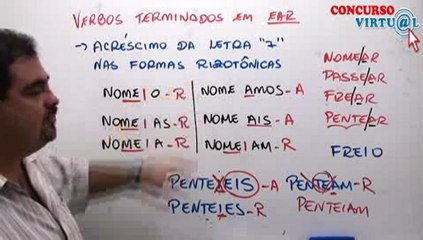 VERBOS TERMINADOS EM EAR
CONCURSO
VIRTU@L
→ ACRÉSCIMO DA LETRA "I"
NAS FORMAS RIZOTÔNICAS
NOMEIO-R
NOMEIAS-R
NOMEIA-R
NOMEAMOS-A
NOMEAIS-A
NOMEIAM-R
NOMEAR
PASSEAR
FREAR
PENTEAR
FREIO
PENTEIEIS-A
PENTEIES-R
PENTEAM-R
PENTEIAM